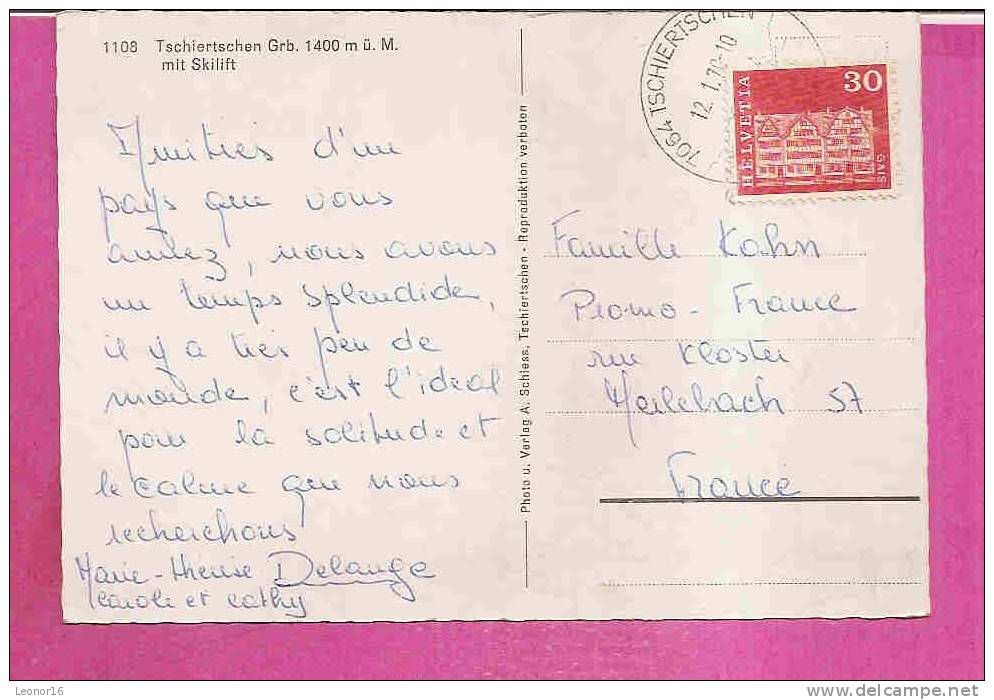 1108 Tschiertschen Grb. 1400 m ü. M.
mit Skilift
Amitiés d'un
pays que vous
aimez, nous avons
un temps splendide,
il y a très peu de
monde, c'est l'idéal
pour la solitude et
le calme que nous
recherchons
Marie-Thérèse Delange
Carole et Cathy
Photo u. Verlag A. Schiess, Tschiertschen - Reproduktion verboten
7064 TSCHIERTSCHEN
12.1.70-10
HELVETIA
30
GAIS
Famille Kahn
Promo-France
rue Kloster
Merlebach 57
France
Leonor16
www.delcampe.net